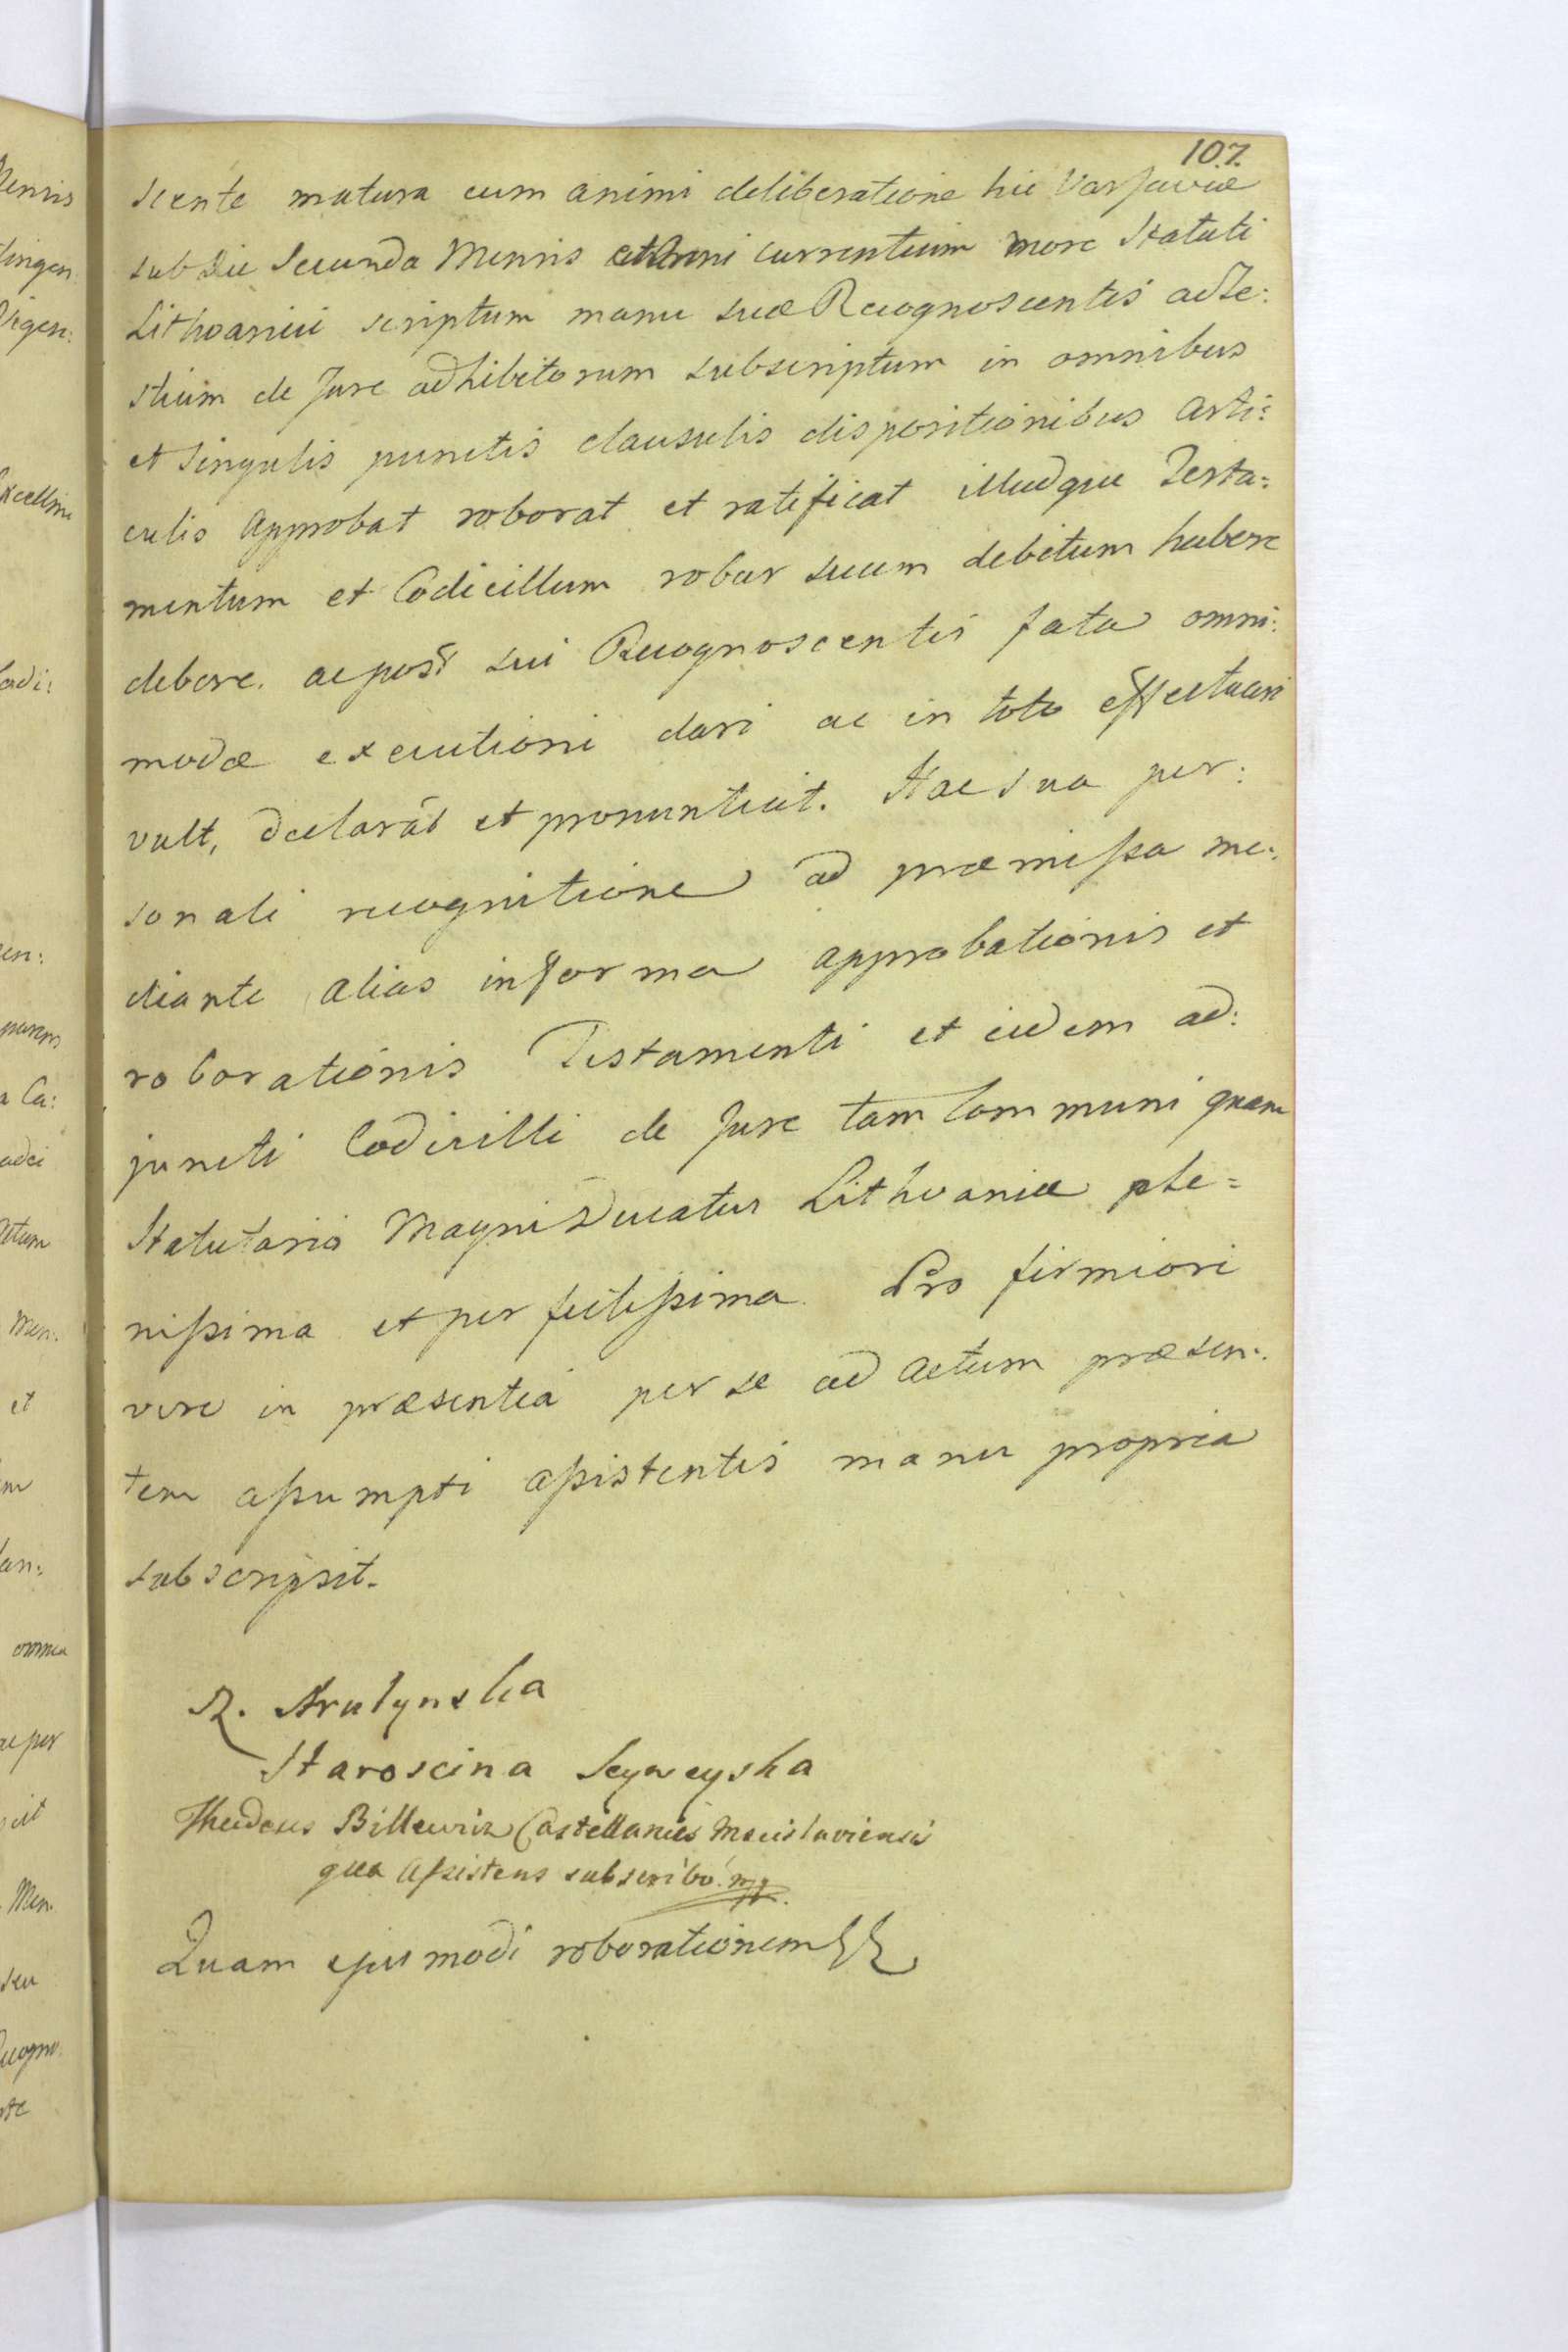 107.
scente matura cum animi deliberatione hic Varsaviæ
sub Die Secunda Mensis et Anni currentium more Statuti
Lithvanici scriptum manu suæ Recognoscentis ad Te:
stium de Jure adhibitorum subscriptum in omnibus
et singulis punctis clausulis dispositionibus Arti:
culis Approbat roborat et ratificat illudque Testa:
mentum et Codicillum robur suum debitum habere
debere. ac post sui Recognoscentis fata omni:
modæ executioni dari ac in toto effectuari
vult, declarat et pronuntiat. Hac sua per:
sonali recognitione ad præmissa me:
diante alias in forma approbationis et
roborationis Testamenti et eidem ad:
juncti Codicilli de Jure tam Communi quam
Statutario Magni Ducatus Lithvaniæ ple=
nissima et perfectissima. Pro firmiori
vero in præsentia per se ad Actum præsen:
tem assumpti assistentis manu propria
subscripsit.
Staroscina
Thadeus Billewicz Castellanies Mscislaviensis
qua Assistens subscribo mp.
Quam ejusmodi roborationem